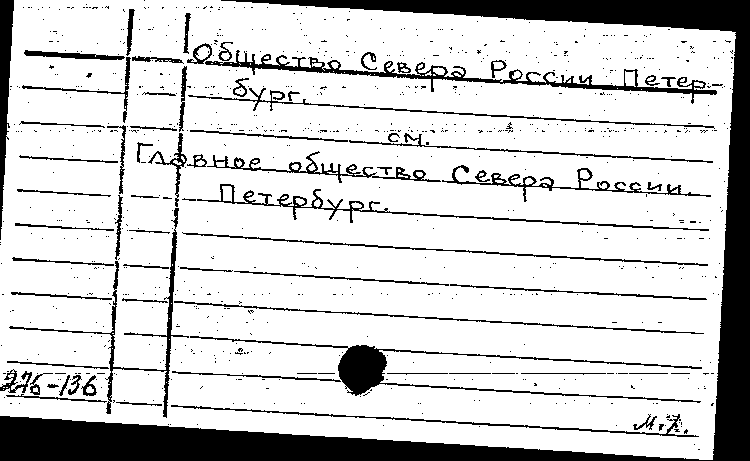 Общество Севера России Петер-
бург.
см.
Главное общество Севера России.
Петербург.
276-136